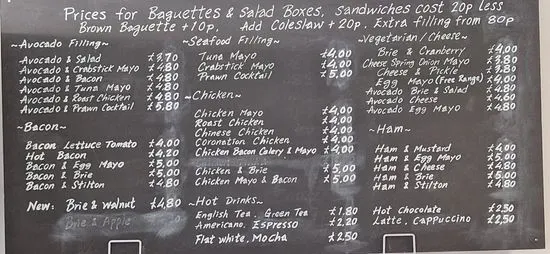 Prices for Baguettes & Salad Boxes, Sandwiches cost 20p less
Brown Baguette + 10p. Add Coleslaw + 20p. Extra filling from 80p
~Avocado Filling~
Avocado & Salad £3.70
Avocado & Crabstick Mayo £4.80
Avocado & Bacon £4.80
Avocado & Tuna Mayo £4.80
Avocado & Roast Chicken £4.80
Avocado & Prawn Cocktail £5.80
~Bacon~
Bacon Lettuce Tomato £4.00
Hot Bacon £4.20
Bacon & Egg Mayo £5.00
Bacon & Brie £5.00
Bacon & Stilton £4.80
New: Brie & Walnut £4.80
Brie & Apple
~Seafood Filling~
Tuna Mayo £4.00
Crabstick Mayo £4.00
Prawn Cocktail £5.00
~Chicken~
Chicken Mayo £4.00
Roast Chicken £4.00
Chinese Chicken £4.00
Coronation Chicken £4.00
Chicken Bacon Celery & Mayo £4.00
Chicken & Brie £5.00
Chicken Mayo & Bacon £5.00
~Hot Drinks~
English Tea, Green Tea £1.80
Americano, Espresso £2.20
Flat white, Mocha £2.50
~Vegetarian / Cheese~
Brie & Cranberry £4.00
Cheese Spring Onion Mayo £3.80
Cheese & Pickle £3.80
Egg Mayo (Free Range)
Avocado Brie & Salad £4.80
Avocado Cheese £4.60
Avocado Egg Mayo £4.80
~Ham~
Ham & Mustard £4.00
Ham & Egg Mayo £5.00
Ham & Cheese £4.80
Ham & Brie £5.00
Ham & Stilton £4.80
Hot Chocolate £2.50
Latte, Cappuccino £2,50